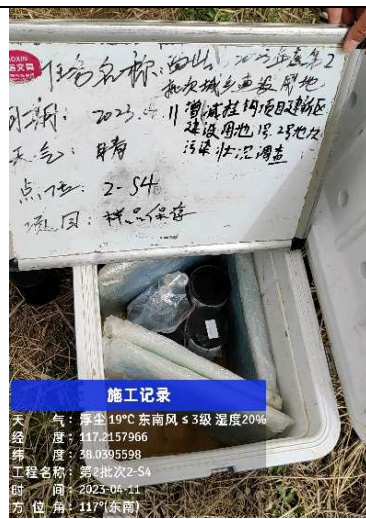 任务名称：山2023年度第2
批次城乡建设用地
日期：2023.4.11 增减挂钩项目建新区
建设用地1号、2号地块
天气：晴 污染状况调查
点位：2-S4
项目：样品保存
施工记录
天 气：浮尘 19℃ 东南风 ≤ 3级 湿度20%
经 度：117.2157966
纬 度：38.0395598
工程名称：第2批次2-S4
时 间：2023-04-11
方 位 角：117°(东南)